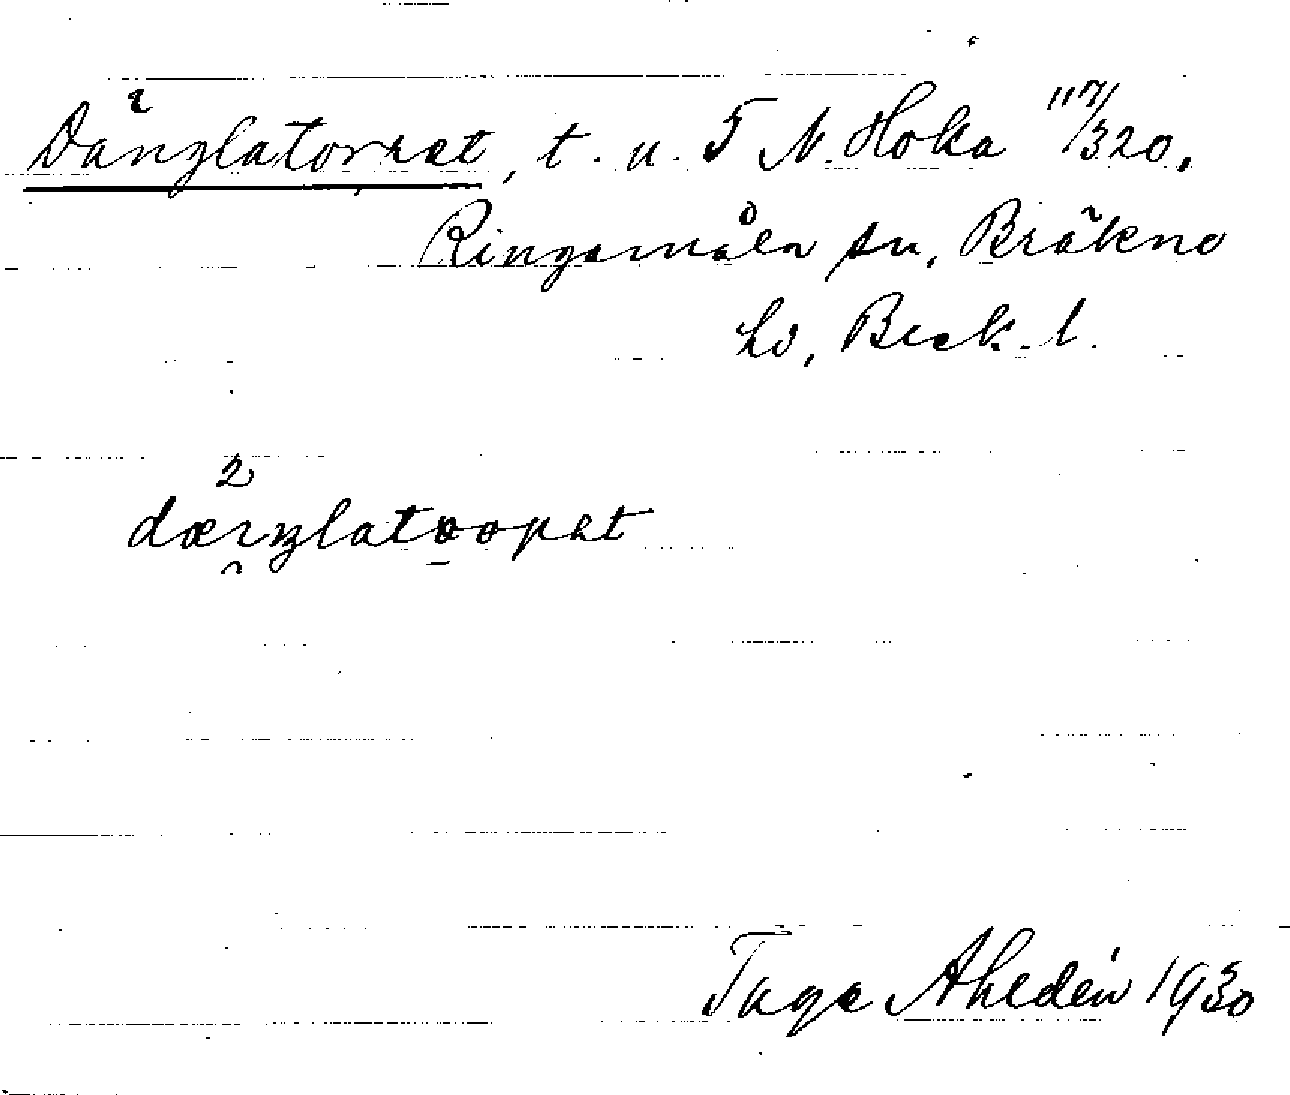 Dänglatorret, t. u. 5 N. Hoka 117/320,
Ringamåla sn, Bräkne
hd, Blek. l.
Tage Ahldén 1930